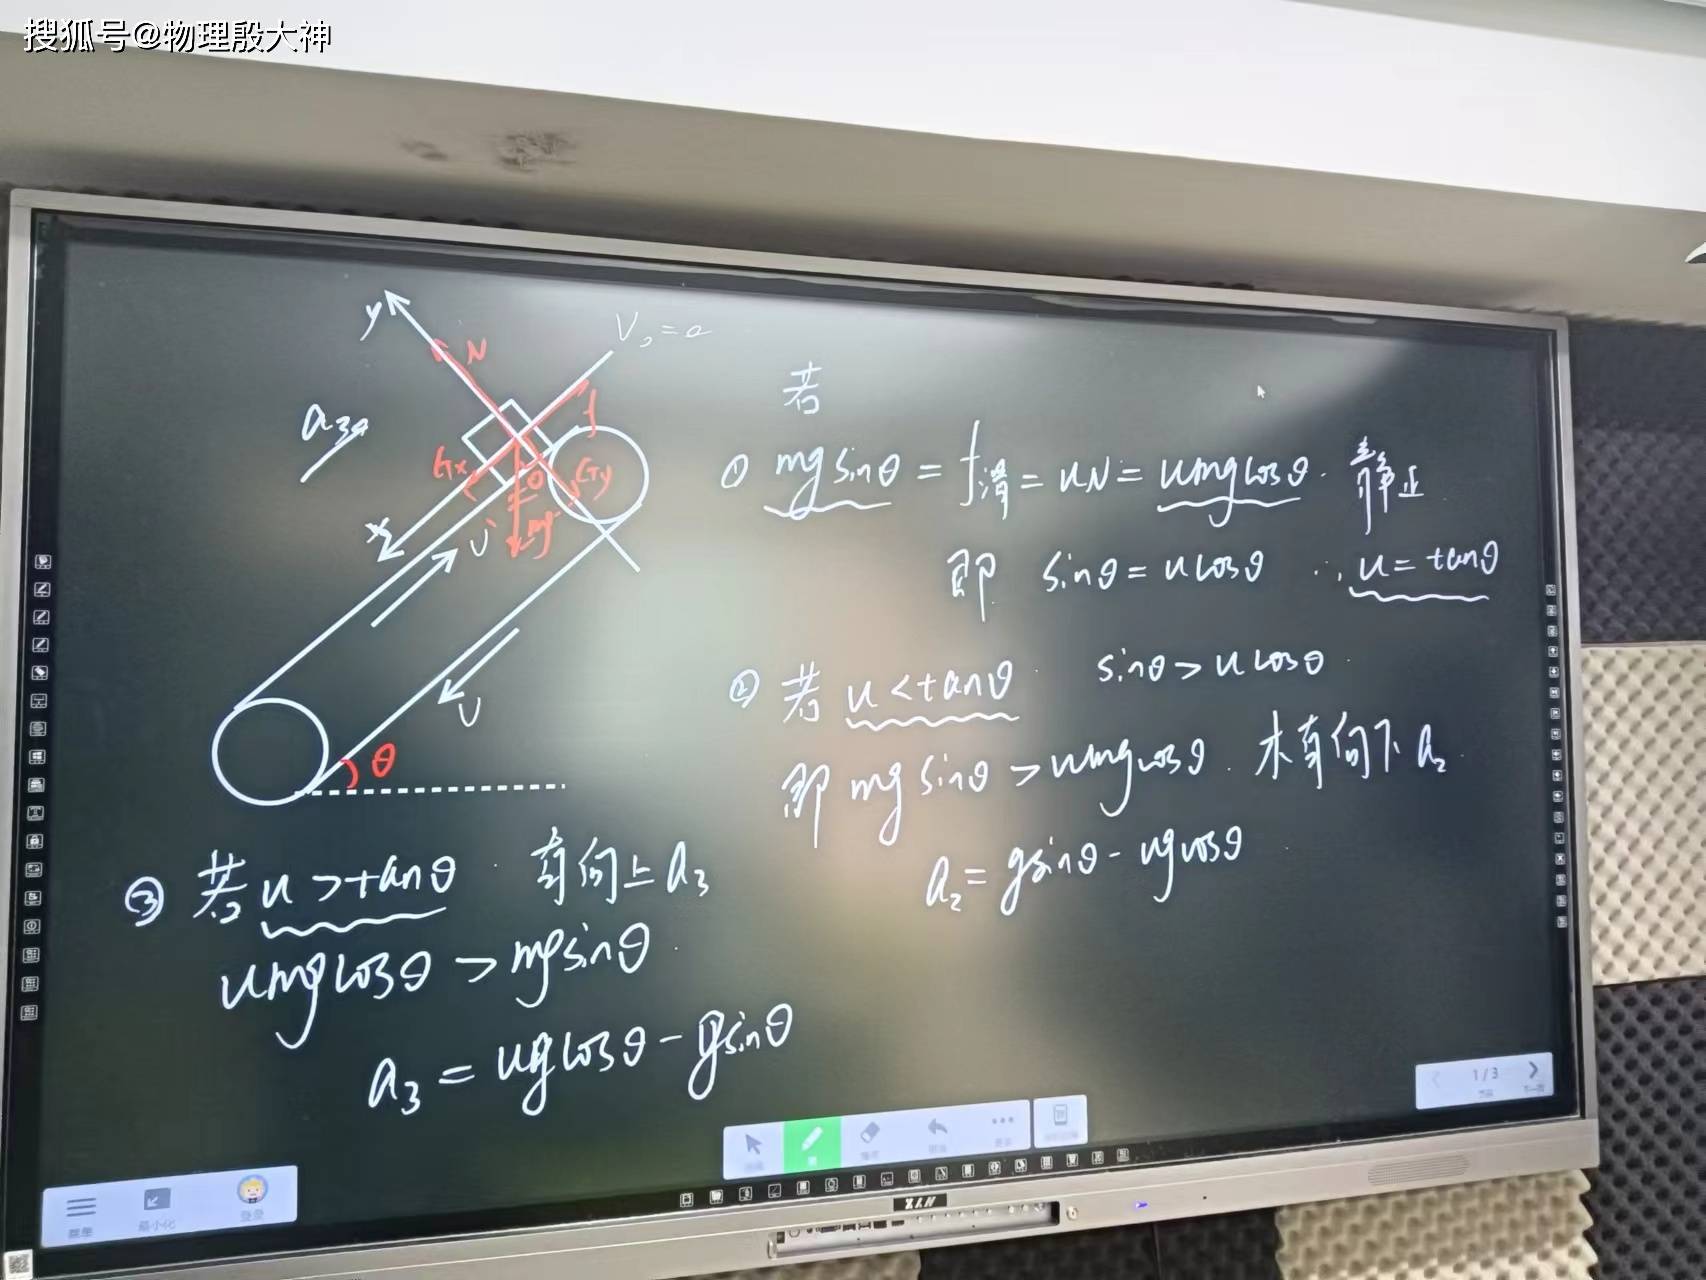 搜狐号@物理殷大神
y
N
V₀=0
a₃
f
Gx
Gy
θ
x
mg
υ
υ
θ
若
① mgsinθ = f滑 = uN = umgcosθ. 静止
即 sinθ = ucosθ ∴ u = tanθ
② 若 u < tanθ sinθ > ucosθ
即 mgsinθ > umgcosθ. 木有向下 a₂
a₂ = gsinθ - ugcosθ
③ 若 u > tanθ 有向上 a₃
umgcosθ > mgsinθ
a₃ = ugcosθ - gsinθ
1/3
最小化
登录